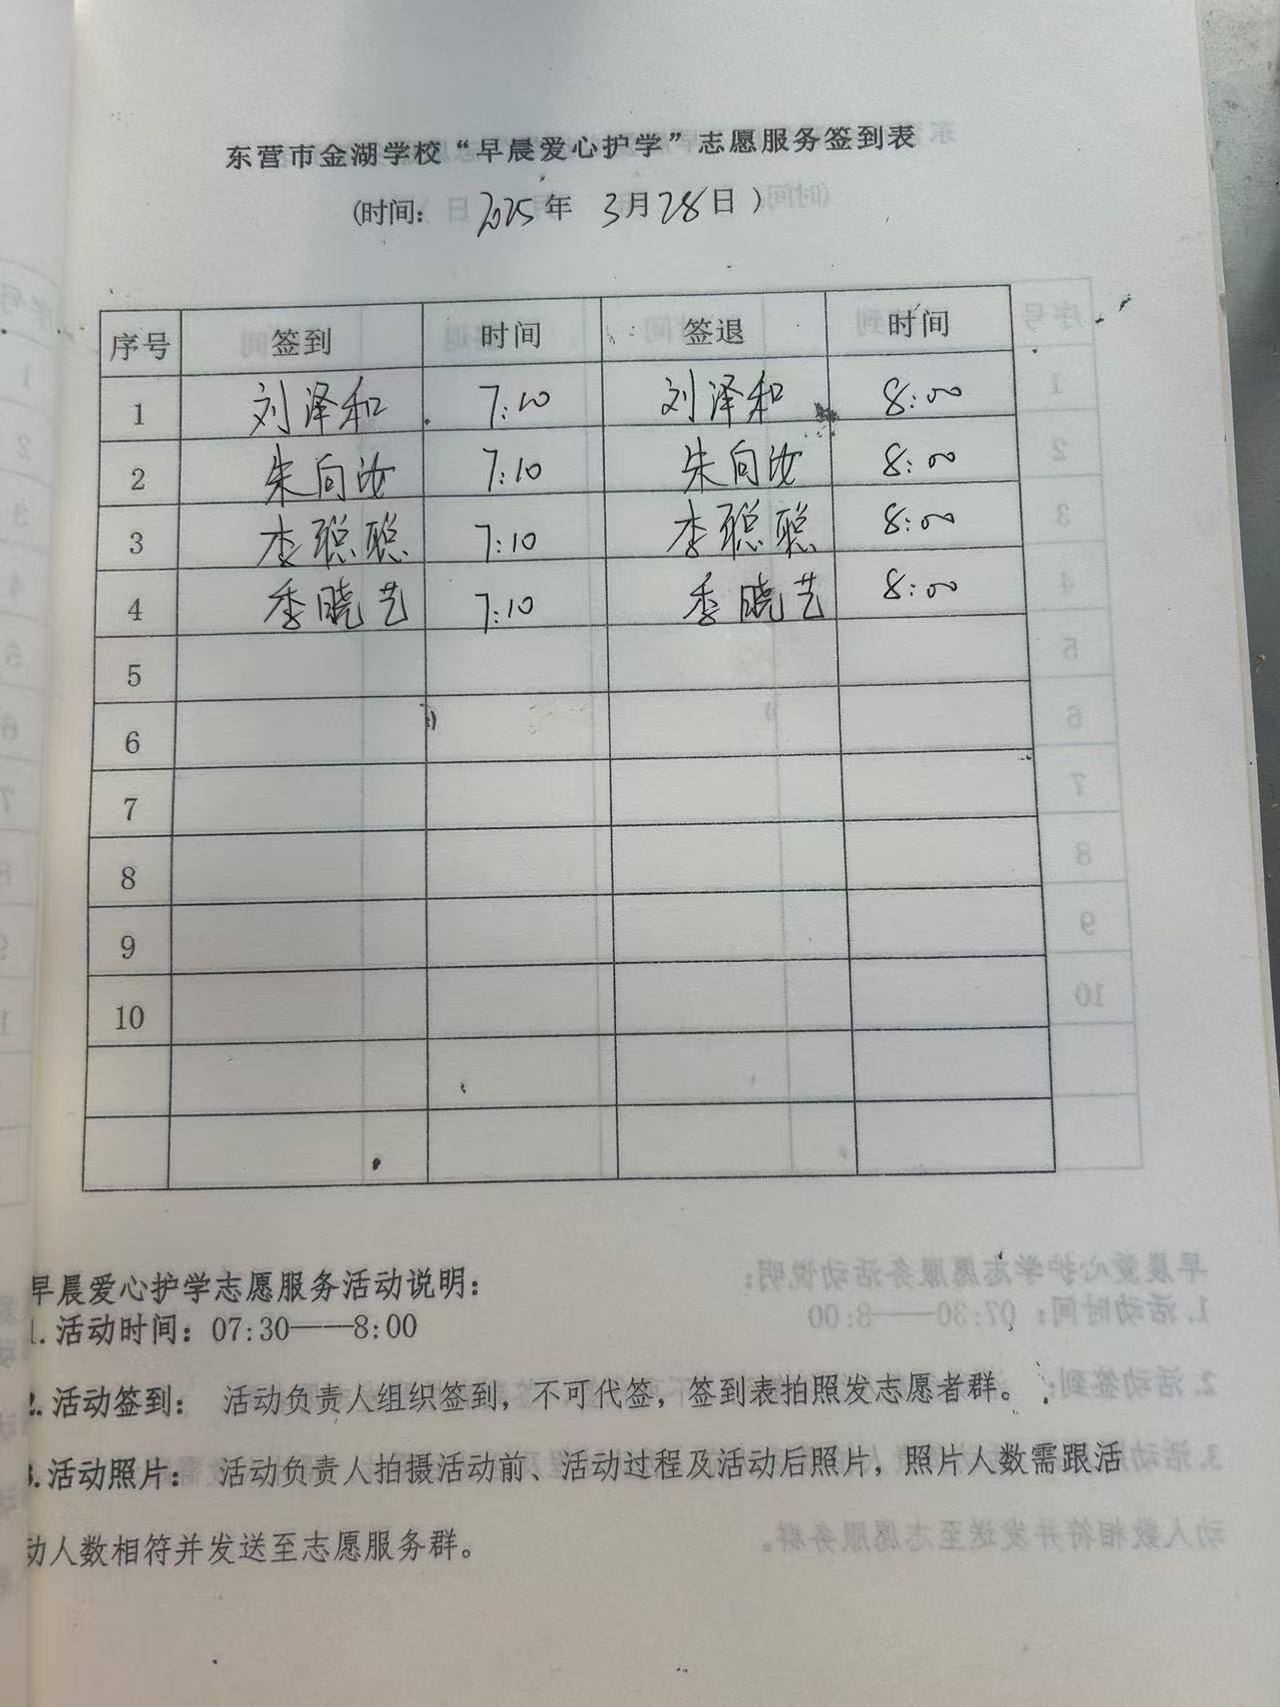 东营市金湖学校“早晨爱心护学”志愿服务签到表
(时间: 2025年 3月28日)
序号 签到 时间 签退 时间
1 刘泽和 7:10 刘泽和 8:00
2 朱向汝 7:10 朱向汝 8:00
3 李聪聪 7:10 李聪聪 8:00
4 季晓艺 7:10 季晓艺 8:00
5
6
7
8
9
10
早晨爱心护学志愿服务活动说明:
1.活动时间: 07:30——8:00
2.活动签到: 活动负责人组织签到, 不可代签, 签到表拍照发志愿者群。
3.活动照片: 活动负责人拍摄活动前、活动过程及活动后照片, 照片人数需跟活
动人数相符并发送至志愿服务群。